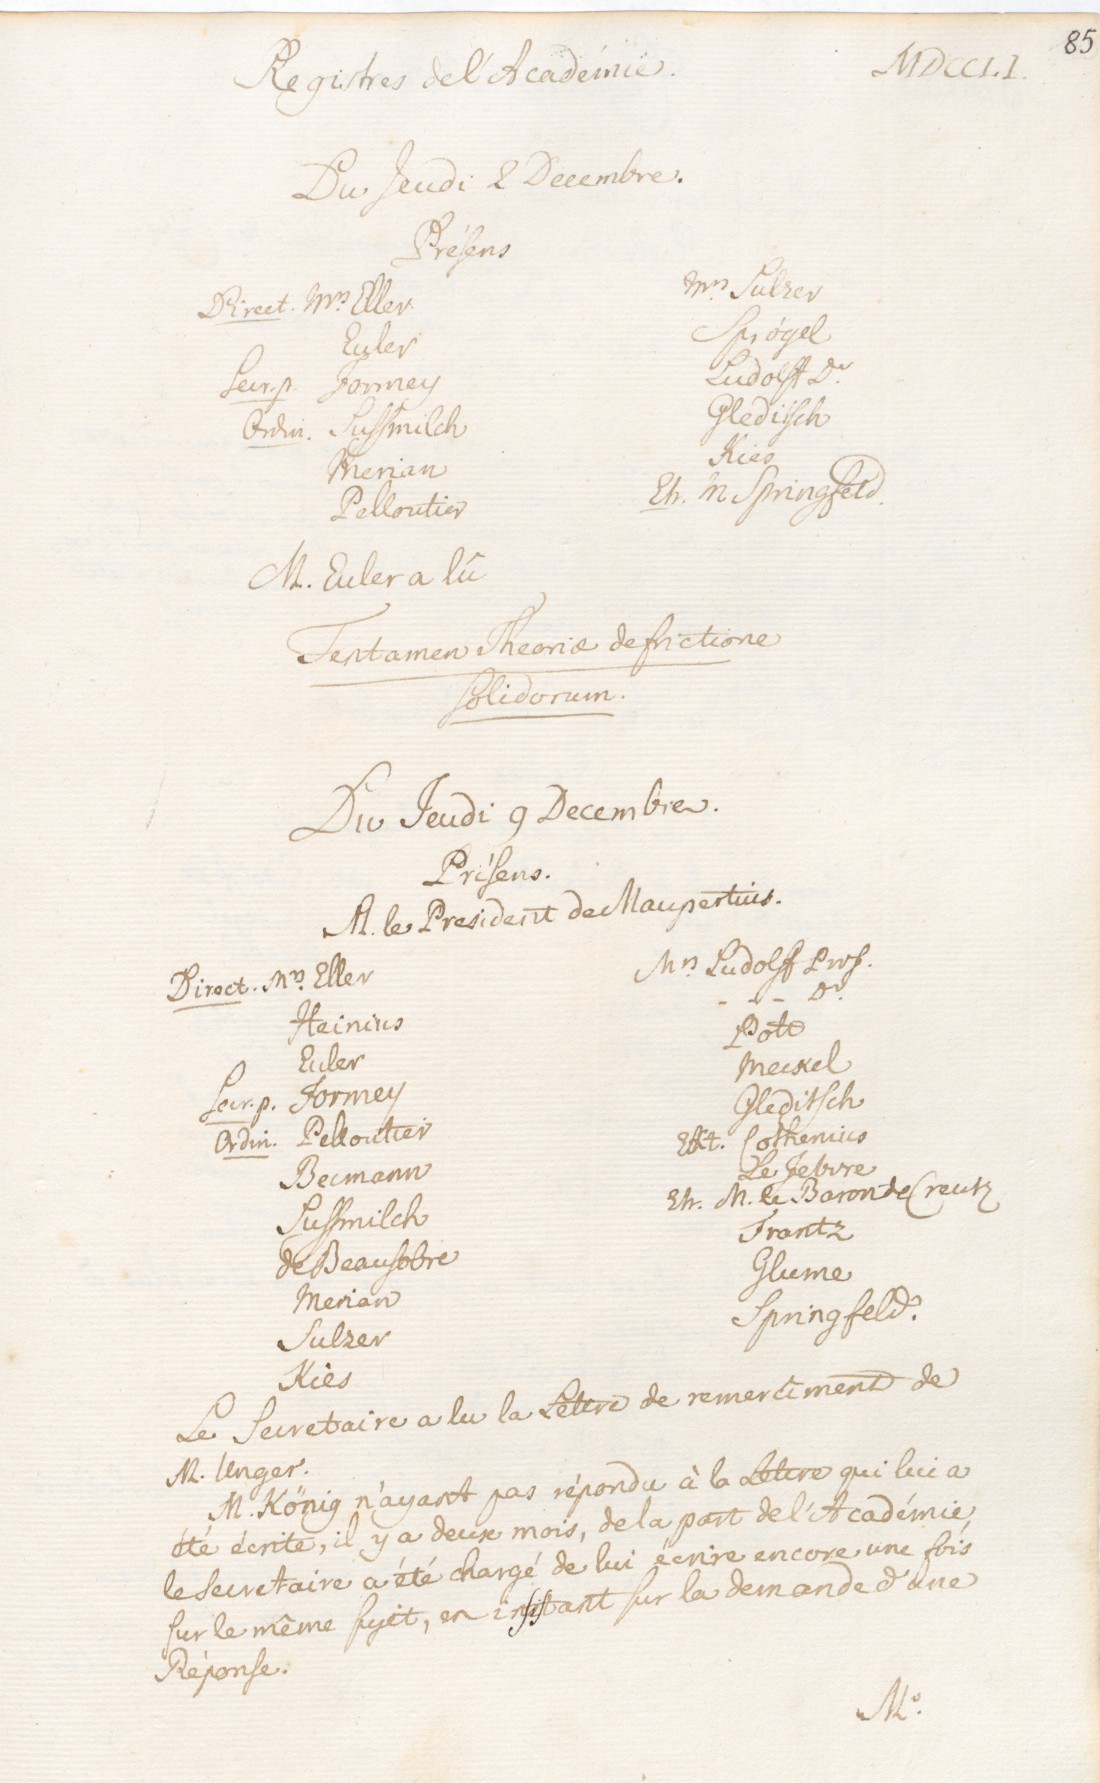 85
Registres de l'Académie.
MDCCLI.
Du Jeudi 2 Decembre.
Présens
Direct. Mrs Eller.
Euler
Secr. p. Formey
Ordin. Sussmilch
Merian
Pelloutier
Mrs Sulzer
Sprögel
Ludolff Dr.
Gleditsch
Kies
Etr. M Springfeld.
M. Euler a lû
Tentamen Theoriæ de frictione
solidorum.
Du Jeudi 9 Decembre.
Présens.
M. le President de Maupertuis.
Direct. Mrs Eller
Heinius
Euler
Secr. p. Formey
Ordin. Pelloutier
Becmann
Sussmilch
de Beausobre
Merian
Sulzer
Kies
Mrs Ludolff Prof.
- - - Dr.
Pott
Meckel
Gleditsch
Cothenius
Le Febvre
Etr. M. le Baron de Creutz
Frantz
Glume
Springfeld.
Le Secretaire a lu la Lettre de remerciment de
M. Unger.
M. König n'ayant pas répondu à la Lettre qui lui a
été écrite, il y a deux mois, de la part de l'Académie,
le Secretaire a été chargé de lui écrire encore une fois
sur le même sujet, en insistant sur la demande d'une
Réponse.
Mr.